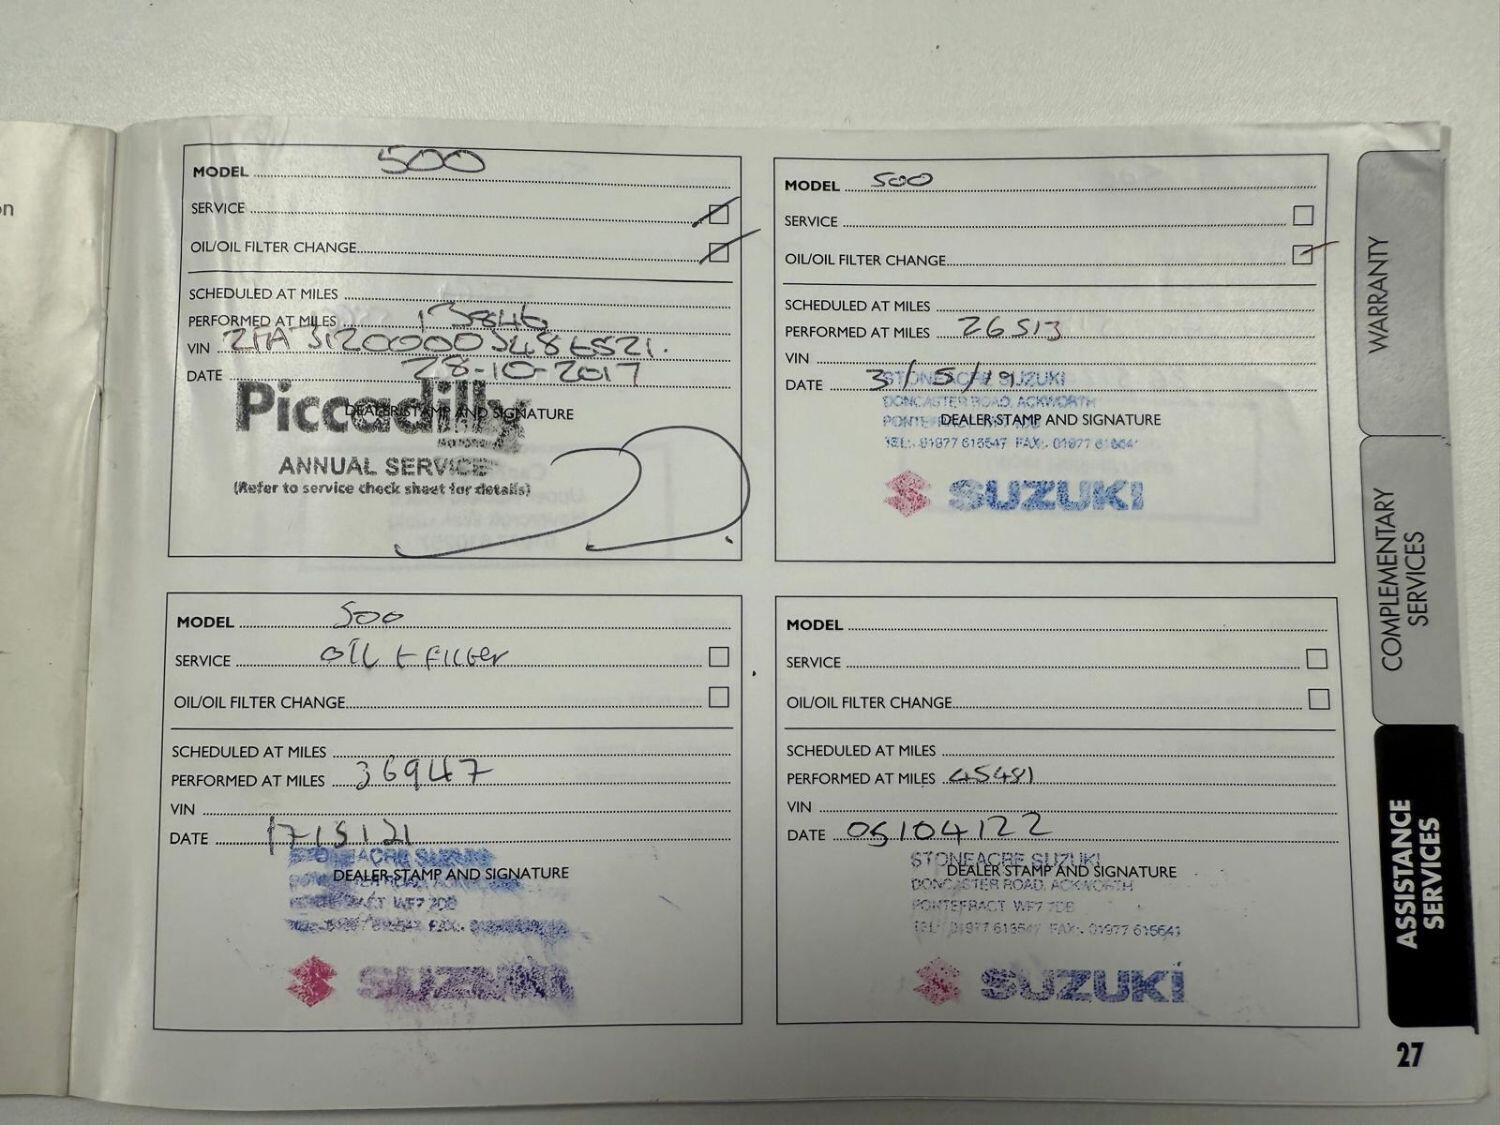 on
MODEL 500
SERVICE
OIL/OIL FILTER CHANGE
SCHEDULED AT MILES
PERFORMED AT MILES 13846
VIN
DATE 28-10-2017
Piccadilly
DEALER STAMP AND SIGNATURE
ANNUAL SERVICE
(Refer to service check sheet for details)
MODEL 500
SERVICE
OIL/OIL FILTER CHANGE
SCHEDULED AT MILES
PERFORMED AT MILES 26513
VIN
DATE 3/5/19
STONEACRE SUZUKI
DONCASTER ROAD, ACKWORTH
DEALER STAMP AND SIGNATURE
TEL:. 01977 615647 FAX:. 01977 615641
SUZUKI
MODEL 500
SERVICE oil + filter
OIL/OIL FILTER CHANGE
SCHEDULED AT MILES
PERFORMED AT MILES 36947
VIN
DATE 17/5/21
STONEACRE SUZUKI
DEALER STAMP AND SIGNATURE
WF7 7DB
SUZUKI
MODEL
SERVICE
OIL/OIL FILTER CHANGE
SCHEDULED AT MILES
PERFORMED AT MILES 45481
VIN
DATE 05/04/22
STONEACRE SUZUKI
DEALER STAMP AND SIGNATURE
DONCASTER ROAD, ACKWORTH
PONTEFRACT WF7 7DB
TEL:. 01977 615647 FAX:. 01977 615641
SUZUKI
WARRANTY
COMPLEMENTARY
SERVICES
ASSISTANCE
SERVICES
27